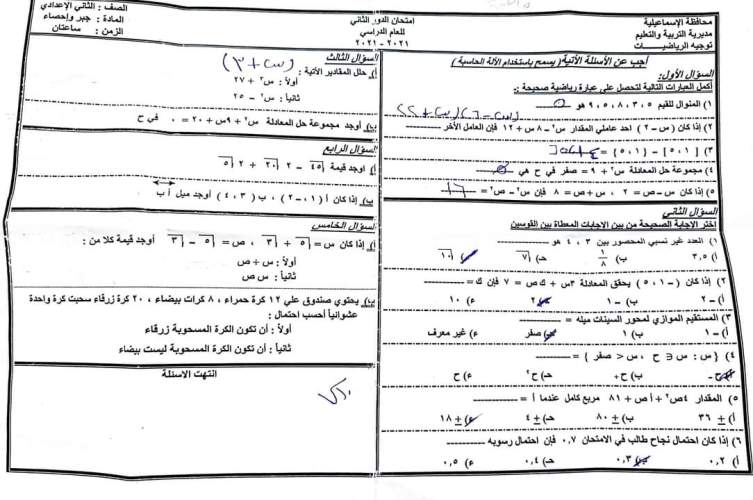 محافظة الإسماعيلية
مديرية التربية والتعليم
توجيه الرياضيـــــات
امتحان الدور الثاني
للعام الدراسي
٢٠٢١ - ٢٠٢١
الصف : الثاني الإعدادي
المادة : جبر وإحصاء
الزمن : ساعتان
أجب عن الأسئلة الآتية ( يسمح باستخدام الآلة الحاسبة )
السؤال الأول:
أكمل العبارات التالية لتحصل على عبارة رياضية صحيحة :-
١) المنوال للقيم ٣،٥ ، ٨ ، ٥ ، ٩ هو ٥
٢) إذا كان ( س – ٢ ) احد عاملي المقدار س٢ – ٨ س + ١٢ فإن العامل الأخر ----------
٣) [ ١ ، ٥ ] – { ١ ، ٥ } =
٤) مجموعة حل المعادلة س٢ + ٩ = صفر في ح هي
٥) إذا كان س – ص = ٢ ، س + ص = ٨ فإن س٢ – ص٢ = ١٦
السؤال الثاني
إختر الاجابة الصحيحة من بين الاجابات المعطاة بين القوسين
١) العدد غير نسبي المحصور بين ٣ ، ٤ هو ----------
أ) ٣،٥ ب) ١/٨ حـ) √٧ ء) √١٠
٢) إذا كان ( – ١ ، ٥ ) يحقق المعادلة ٣س + ك ص = ٧ فإن ك = ----------
أ) – ٢ ب) – ١ حـ) ٢ ء) ١٠
٣) المستقيم الموازي لمحور السينات ميله = ----------
أ) – ١ ب) ١ حـ) صفر ء) غير معرف
٤) { س : س ∈ ح ، س < صفر } = ----------
أ) ح- ب) ح+ حـ) ح* ء) ح
٥) المقدار ٤ص٢ + أ ص + ٨١ مربع كامل عندما أ = ----------
أ) ± ٣٦ ب) ± ٨٠ حـ) ± ٤ ء) ± ١٨
٦) إذا كان احتمال نجاح طالب في الامتحان ٠,٧ فإن احتمال رسوبه ----------
أ) ٠,٢ ب) ٠,٣ حـ) ٠,٤ ء) ٠,٥
السؤال الثالث
(س + ٣)
أ) حلل المقادير الآتية :
أولاً : س٣ + ٢٧
ثانياً : س٢ – ٢٥
ب) أوجد مجموعة حل المعادلة س٢ + ٩س + ٢٠ = ٠ في ح
السؤال الرابع
أ) اوجد قيمة √٤٥ – ٢ √٢٠ + ٢ √٥
ب) إذا كان أ ( ١ ، – ٢ ) ، ب ( ٣ ، ٤ ) أوجد ميل أ ب
السؤال الخامس
أ) إذا كان س = √٥ + √٣ ، ص = √٥ – √٣ أوجد قيمة كلا من :
أولاً : س + ص
ثانياً : س ص
ب) يحتوي صندوق علي ١٢ كرة حمراء ، ٨ كرات بيضاء ، ٢٠ كرة زرقاء سحبت كرة واحدة
عشوائياً أحسب احتمال :
أولاً : أن تكون الكرة المسحوبة زرقاء
ثانياً : أن تكون الكرة المسحوبة ليست بيضاء
انتهت الاسئلة